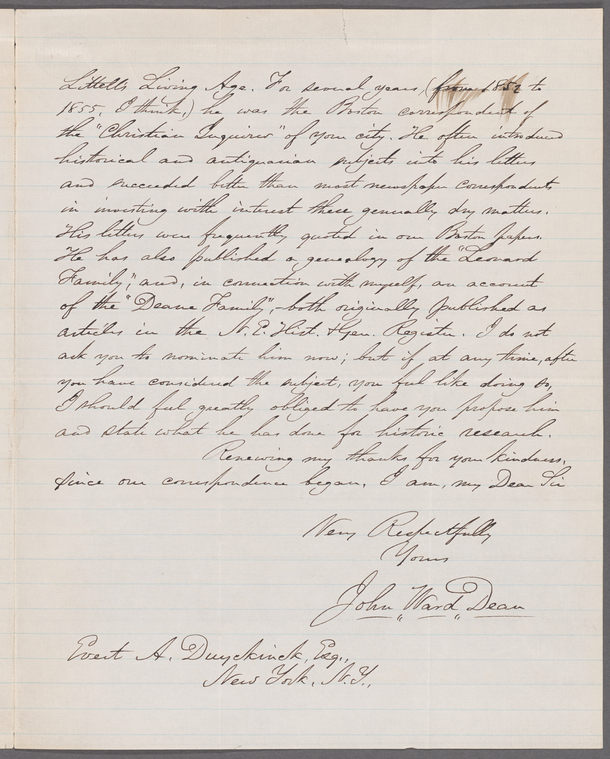 Littell's Living Age. For several years (from 1852 to
1855, I think,) he was the Boston correspondent of
the "Christian Inquirer" of your city. He often introduced
historical and antiquarian subjects into his letters
and succeeded better than most newspaper correspondents
in investing with interest these generally dry matters.
His letters were frequently quoted in our Boston papers.
He has also published a genealogy of the "Leonard
Family," and, in connection with myself, an account
of the "Deane Family", both originally published as
articles in the N. E. Hist. & Gen. Register. I do not
ask you to nominate him now; but if at any time, after
you have considered the subject, you feel like doing so,
I should feel greatly obliged to have you propose him
and state what he has done for historic research.
Renewing my thanks for your kindness,
since our correspondence began, I am, my Dear Sir
Very Respectfully
Yours
John "Ward" Dean
Evert A. Duyckinck, Esq.,
New York, N.Y.,